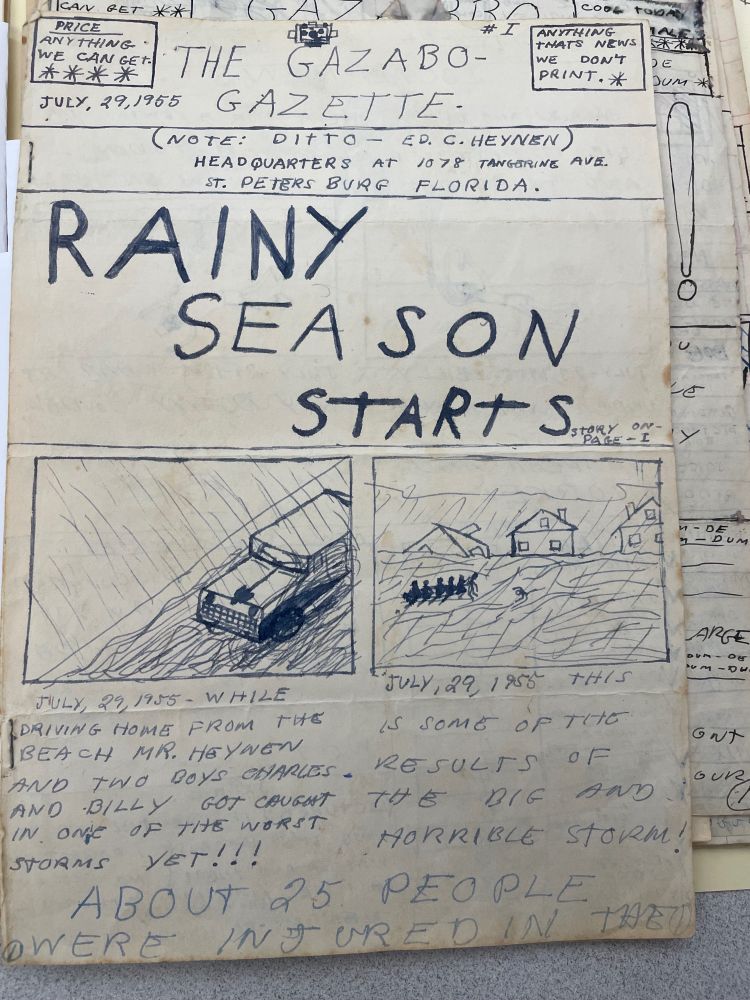 CAN GET **
GAZABO
COOL TODAY
PRICE
ANYTHING
WE CAN GET.
****
# I
ANYTHING
THATS NEWS
WE DON'T
PRINT. *
THE GAZABO-
GAZETTE.
JULY, 29, 1955
(NOTE: DITTO - ED. C. HEYNEN)
HEADQUARTERS AT 1078 TANGERINE AVE.
ST. PETERS BURG FLORIDA.
RAINY
SEASON
STARTS
STORY ON-
PAGE - I
JULY, 29, 1955 - WHILE
DRIVING HOME FROM THE
BEACH MR. HEYNEN
AND TWO BOYS CHARLES.
AND BILLY GOT CAUGHT
IN ONE OF THE WORST
STORMS YET!!!
JULY, 29, 1955 THIS
IS SOME OF THE
RESULTS OF
THE BIG AND
HORRIBLE STORM!
ABOUT 25 PEOPLE
WERE INJURED IN THE
DE
DUM *
!
U
VE
Y
M-DE
M-DUM
ARGE
DUM-DE
UM-DU
GNT
OUR